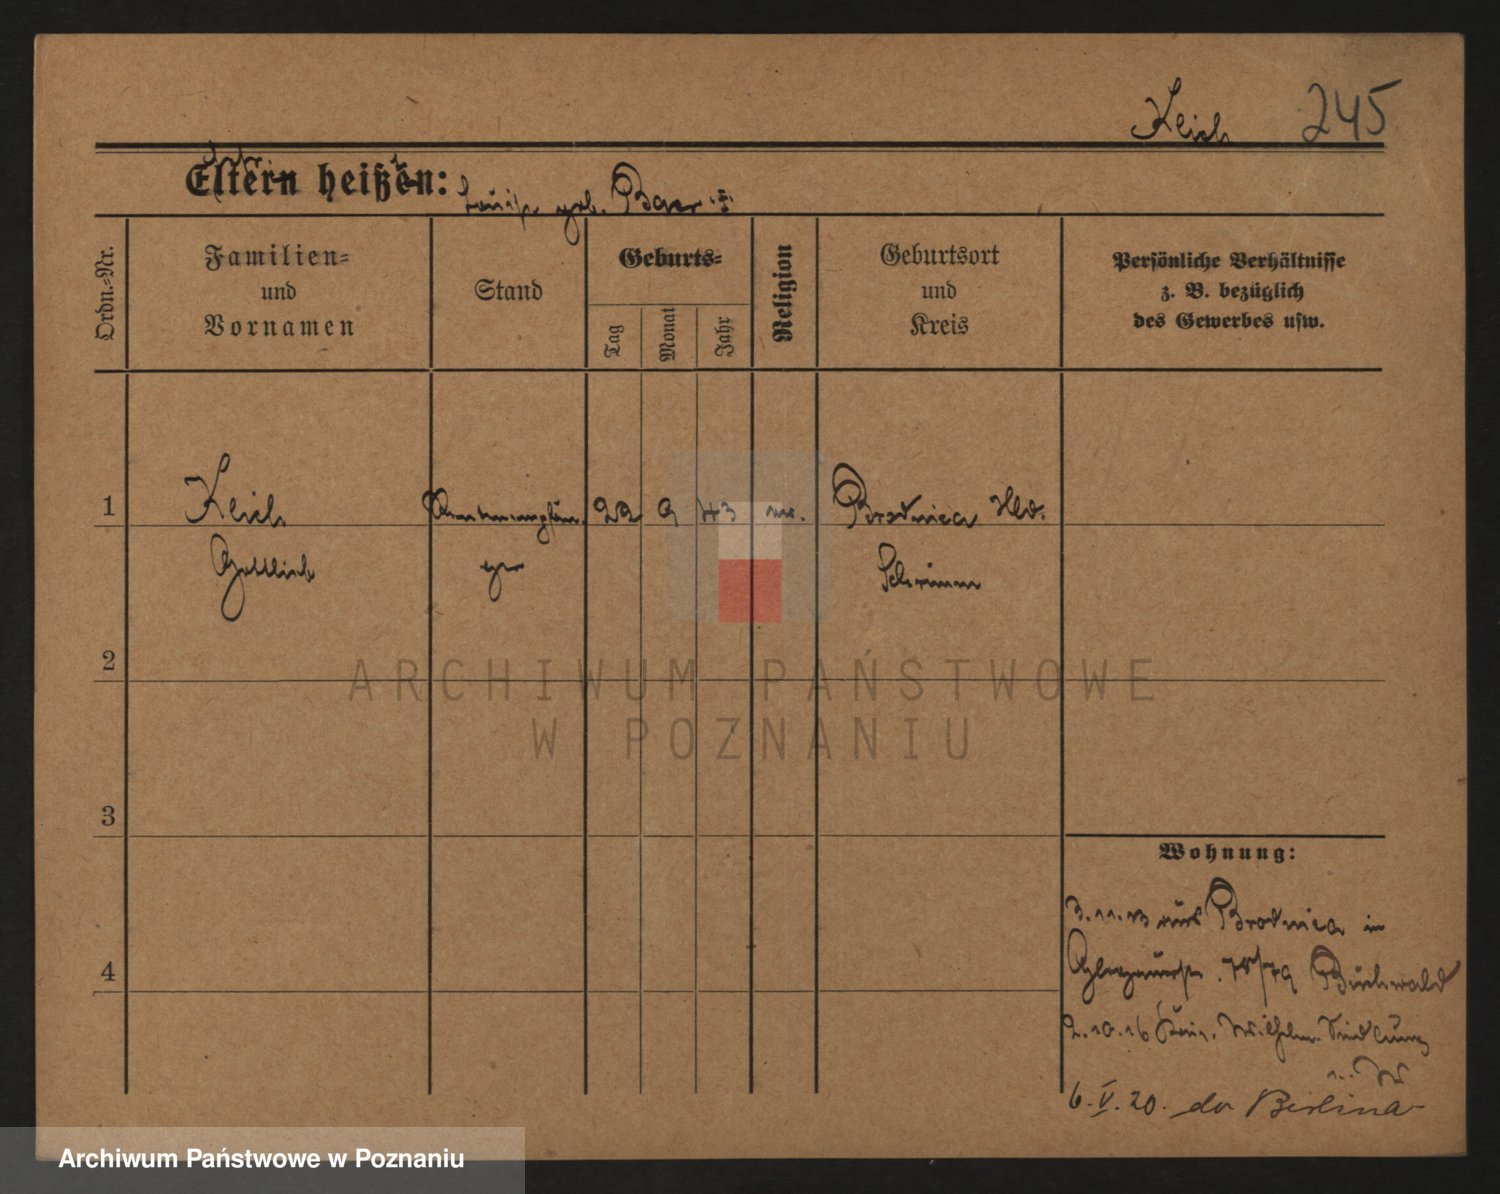 Keich 245
Eltern heißen:
Luise geb. Baer
Ordn.-Nr.
Familien-
und
Vornamen
Stand
Geburts-
Tag
Monat
Jahr
Religion
Geburtsort
und
Kreis
Persönliche Verhältnisse
z. B. bezüglich
des Gewerbes usw.
1
Keich 22 9 43 Brodnica
Gottlieb Schrimm
2
ARCHIWUM PAŃSTWOWE
W POZNANIU
3
Wohnung:
3.11.13 aus Brodnica in
4
Buchwald
2.10.16 Wilhelm Siedlung
6.V.20. do Berlina
Archiwum Państwowe w Poznaniu